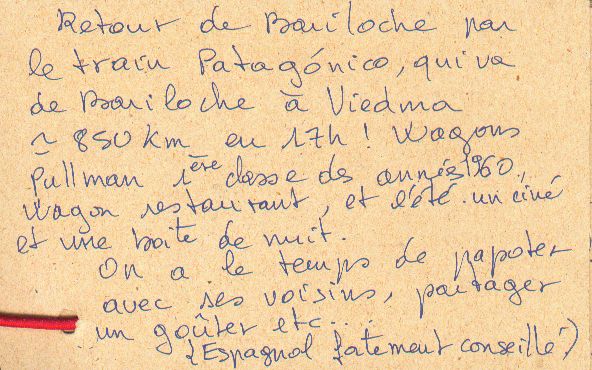 Retour de Bariloche par
le train Patagónico, qui va
de Bariloche à Viedma
≃ 850 km en 17h ! Wagons
Pullman 1ère classe des années 1960,
Wagon restaurant, et l'été un ciné
et une boîte de nuit.
On a le temps de papoter
avec ses voisins, partager
un goûter etc...
(Espagnol fortement conseillé !)